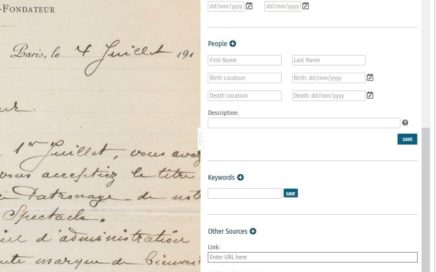 -FONDATEUR
Paris, le 4 Juillet 191
ur.
1er Juillet, vous avez
vous acceptiez le titre
Patronage de not
Spectacle.
d'administration
ute marque de bienvei
dd/mm/yyyy dd/mm/yyyy
People
First Name Last Name
Birth Location Birth: dd/mm/yyyy
Death Location Death: dd/mm/yyyy
Description:
SAVE
Keywords
SAVE
Other Sources
Link:
Enter URL here